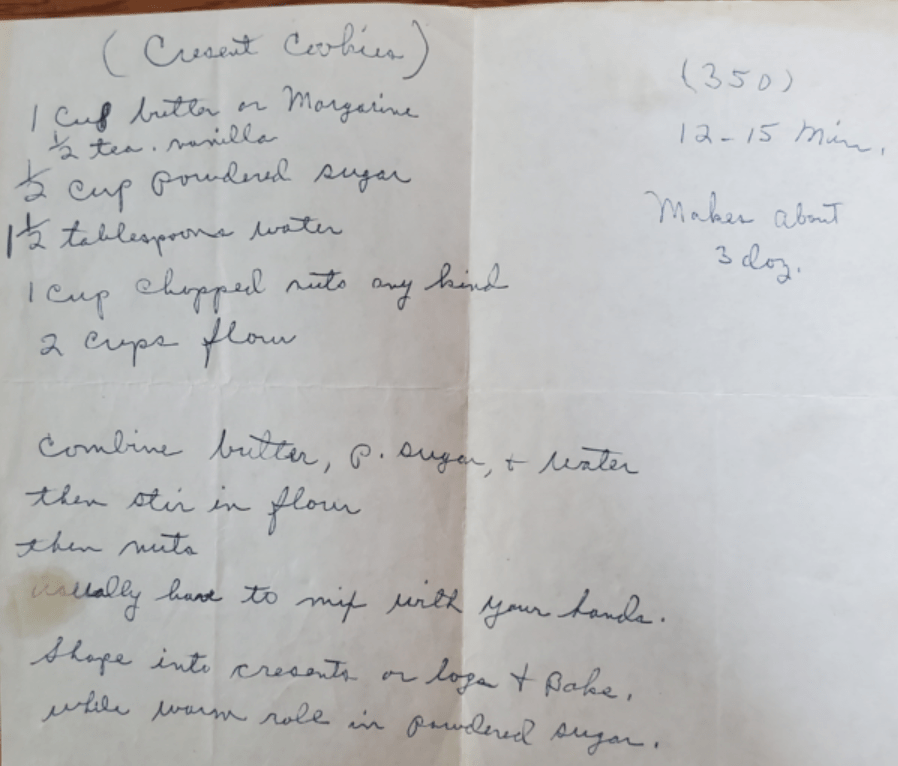 (Cresent Cookies)
1 Cup butter or Margarine
1/2 tea. vanilla
1/2 cup powdered sugar
1 1/2 tablespoons water
1 cup chopped nuts any kind
2 cups flour
(350)
12-15 Min.
Makes about
3 doz.
Combine butter, p. sugar, + water
then stir in flour
then nuts
usually have to mix with your hands.
Shape into cresents or logs + Bake.
while warm roll in powdered sugar.